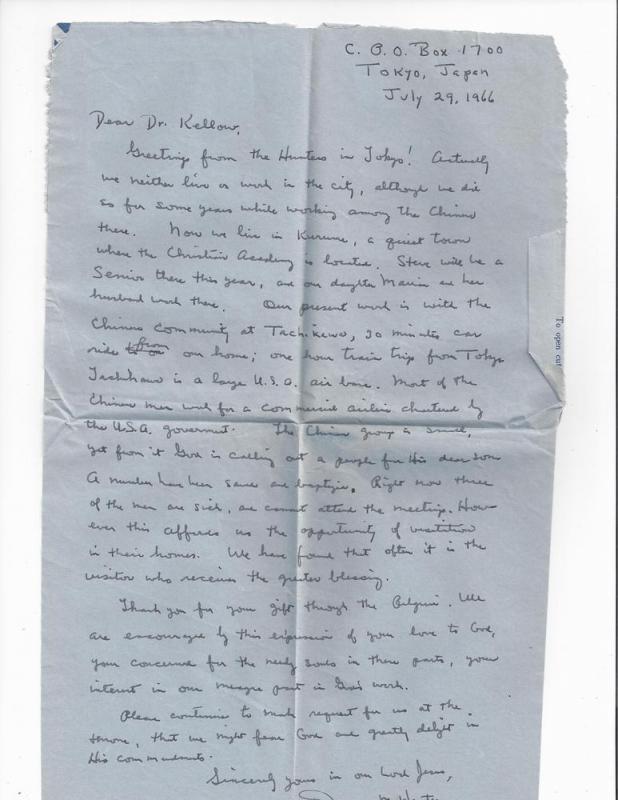 C. P. O. Box 1700
Tokyo, Japan
July 29, 1966
Dear Dr. Kellow,
Greetings from the Hunters in Tokyo! Actually
we neither live or work in the city, although we did
so for some years while working among the Chinese
there. Now we live in Kurume, a quiet town
where the Christian Academy is located. Steve will be a
Senior there this year, and our daughter and her
husband work there. Our present work is with the
Chinese community at Tachikawa, 30 minutes car
ride from our home; one hour train trip from Tokyo
Tachikawa is a large U.S.A. air base. Most of the
Chinese men work for a commercial airline chartered by
the U.S.A. government. The Chinese group is small,
yet from it God is calling out a people for His dear Son
A number have been saved and baptized. Right now three
of the men are sick, and cannot attend the meetings. How-
ever this affords us the opportunity of visitation
in their homes. We have found that often it is the
visitor who receives the greater blessing.
Thank you for your gift through the. We
are encouraged by this expression of your love to God,
your concern for the needy souls in these parts, your
interest in our meagre part in God's work.
Please continue to make request for us at the
throne, that we might fear God and greatly delight in
His commandments.
Sincerely yours in our Lord Jesus,
To open cut